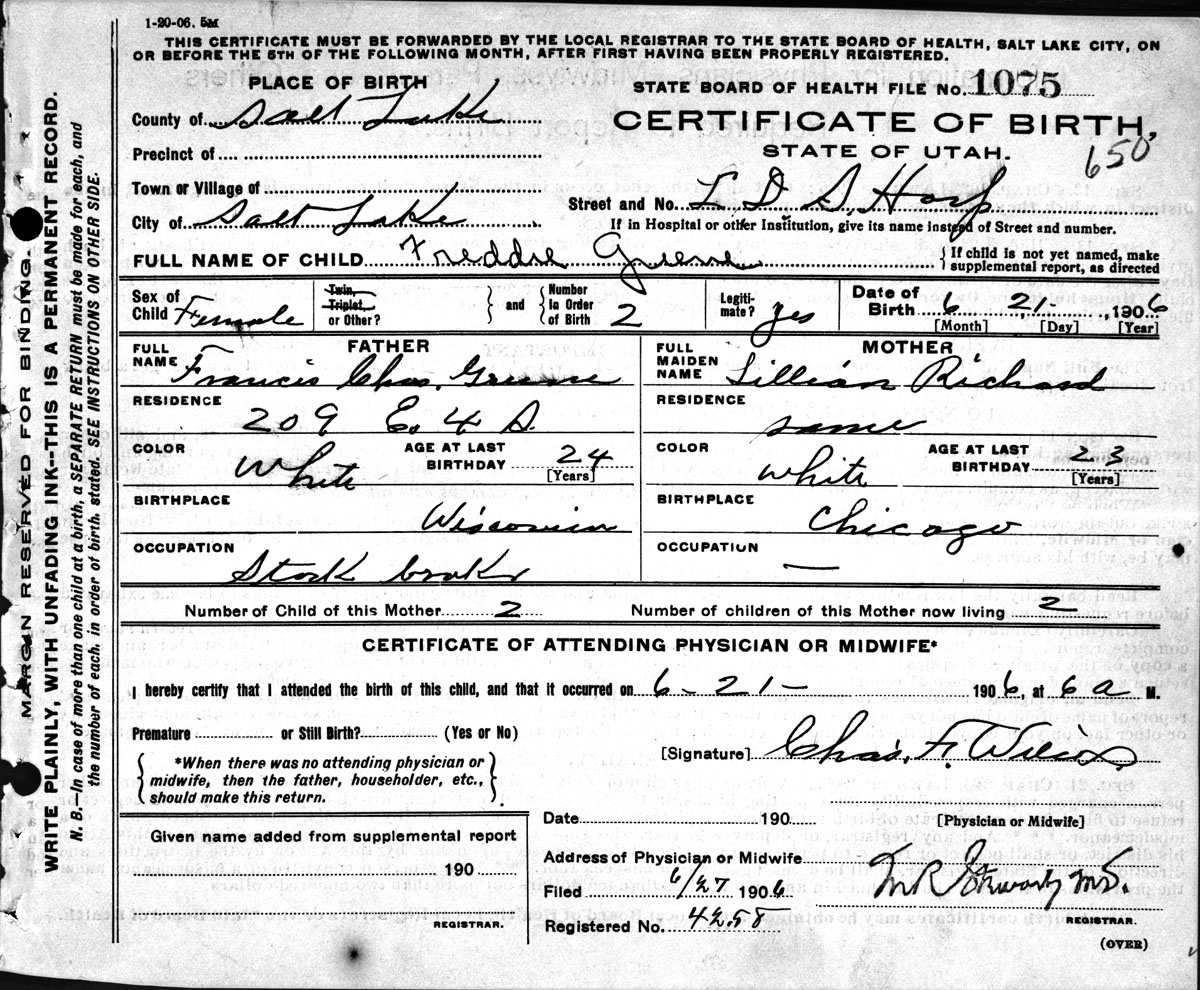 1-20-06. 5M
THIS CERTIFICATE MUST BE FORWARDED BY THE LOCAL REGISTRAR TO THE STATE BOARD OF HEALTH, SALT LAKE CITY, ON
OR BEFORE THE 5TH OF THE FOLLOWING MONTH, AFTER FIRST HAVING BEEN PROPERLY REGISTERED.
PLACE OF BIRTH
STATE BOARD OF HEALTH FILE No. 1075
County of Salt Lake
CERTIFICATE OF BIRTH,
Precinct of
STATE OF UTAH.
650
Town or Village of
Street and No L. D. S. Hosp
City of Salt Lake
If in Hospital or other Institution, give its name instead of Street and number.
FULL NAME OF CHILD Freddie Greene
{ If child is not yet named, make
supplemental report, as directed
Sex of Child Female
Twin, Triplet, or Other?
and
Number in Order of Birth 2
Legiti-mate? yes
Date of Birth 6 21, 1906
[Month] [Day] [Year]
FATHER
FULL NAME Francis Chas. Greene
RESIDENCE
209 E. 4 S.
COLOR White
AGE AT LAST BIRTHDAY 24
[Years]
BIRTHPLACE
Wisconsin
OCCUPATION
Stock broker
MOTHER
FULL MAIDEN NAME Lillian Richard
RESIDENCE
same
COLOR White
AGE AT LAST BIRTHDAY 23
[Years]
BIRTHPLACE
Chicago
OCCUPATION
—
Number of Child of this Mother 2
Number of children of this Mother now living 2
CERTIFICATE OF ATTENDING PHYSICIAN OR MIDWIFE*
I hereby certify that I attended the birth of this child, and that it occurred on 6-21- 1906, at 6 a M.
Premature or Still Birth? (Yes or No)
[Signature] Chas. F.
*When there was no attending physician or
midwife, then the father, householder, etc.,
should make this return.
[Physician or Midwife]
Date 190
Given name added from supplemental report
190
REGISTRAR.
Address of Physician or Midwife
Filed 6/27 1906
M.D.
Registered No. 4258
REGISTRAR.
(OVER)
MARGIN RESERVED FOR BINDING.
WRITE PLAINLY, WITH UNFADING INK--THIS IS A PERMANENT RECORD.
N. B.—In case of more than one child at a birth, a SEPARATE RETURN must be made for each, and
the number of each, in order of birth, stated. SEE INSTRUCTIONS ON OTHER SIDE.